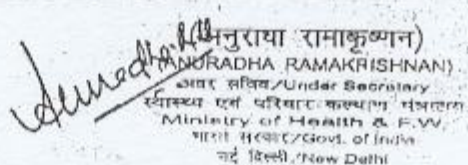 Anuradha R
(अनुराधा रामाकृष्णन)
(ANURADHA RAMAKRISHNAN)
अवर सचिव/Under Secretary
स्वास्थ्य एवं परिवार कल्याण मंत्रालय
Ministry of Health & F.W.
भारत सरकार/Govt. of India
नई दिल्ली/New Delhi